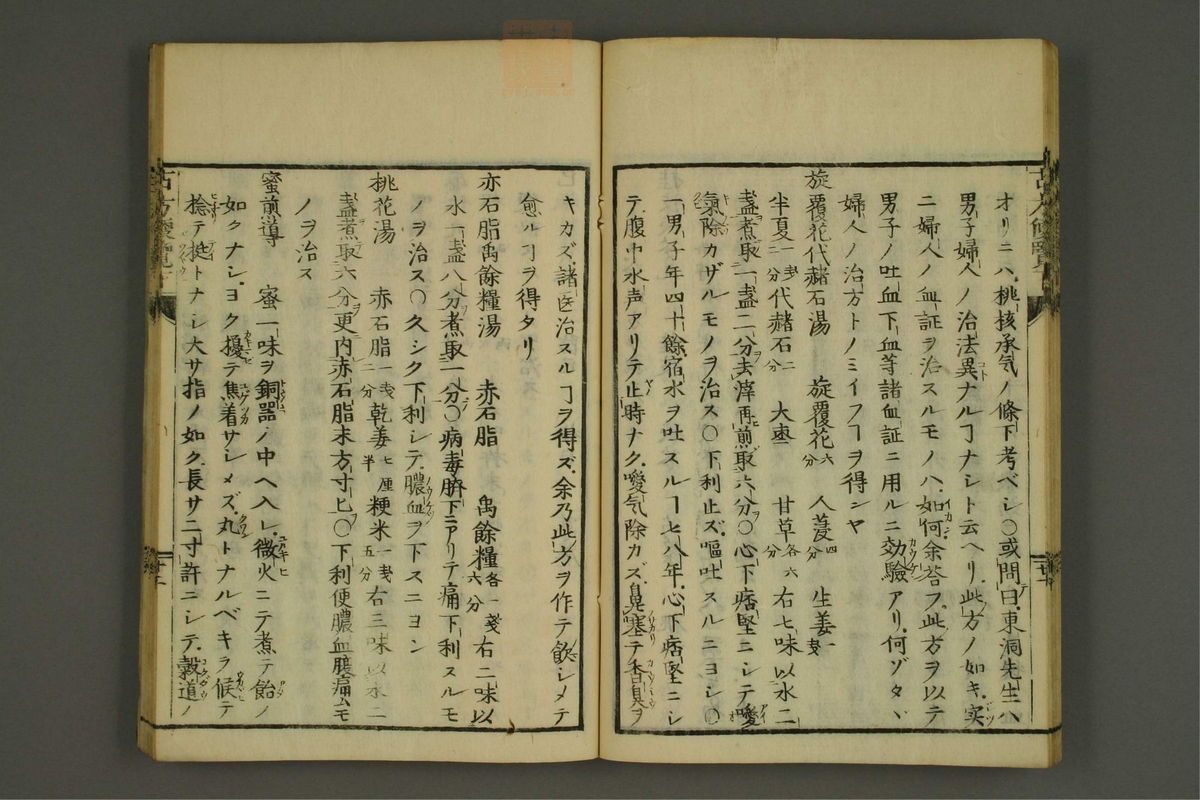 オリニハ桃核承気ノ條下考ベシ〇或問曰東洞先生ハ
男子婦人ノ治法異ナルヿナシト云ヘリ此方ノ如キ実
ニ婦人ノ血証ヲ治スルモノハ如何余荅フ此方ヲ以テ
男子ノ吐血下血等諸血証ニ用ルニ効驗アリ何ゾタヾ
婦人ノ治方トノミイフヿヲ得ンヤ
旋覆花代赭石湯 旋覆花六分 人蓡四分 生姜一戔
半夏一戔二分 代赭石二分 大棗 甘草各六分 右七味以水二
盞煮取一盞二分去滓再煎取六分〇心下痞堅ニシテ噯
氣除カザルモノヲ治ス〇下利止ズ嘔吐スルニヨシ〇
一男子年四十餘宿水ヲ吐スルヿ七八年心下痞堅ニシ
テ腹中水声アリテ止時ナク噯气除カズ鼻塞テ香臭ヲ
キカズ諸医治スルヿヲ得ズ余乃此方ヲ作テ飲シメテ
愈ルヿヲ得タリ
赤石脂禹餘糧湯 赤石脂 禹餘糧各一戔六分 右二味以
水一盞八分煮取一分〇病毒臍下ニアリテ痛下利スルモ
ノヲ治ス〇久シク下利シテ膿血ヲ下スニヨシ
桃花湯 赤石脂一戔二分 乾姜七厘半 粳米一戔五分 右三味以水二
盞煮取六分更内赤石脂末方寸匕〇下利便膿血腹痛ムモ
ノヲ治ス
蜜煎導 蜜一味ヲ銅器ノ中ヘ入レ微火ニテ煮テ飴ノ
如クナシヨク擾テ焦着サシメズ丸トナルベキヲ候テ
捻テ挺トナシ大サ指ノ如ク長サ二寸許ニシテ穀道ノ